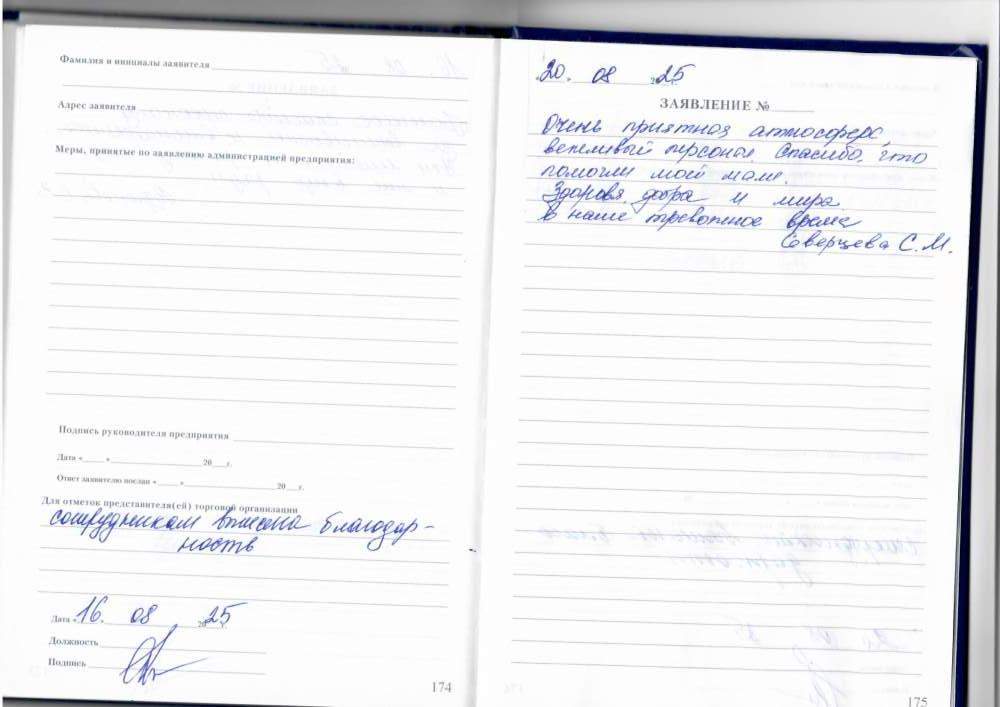 Фамилия и инициалы заявителя
Адрес заявителя
Меры, принятые по заявлению администрацией предприятия:
Подпись руководителя предприятия
Дата «___» ___ 20__г.
Ответ заявителю послан «___» ___ 20__г.
Для отметок представителя(ей) торговой организации
сотрудникам внесена благодар-
ность
Дата «16. 08 2025 г.
Должность
Подпись
174
20. 08 2025
ЗАЯВЛЕНИЕ №
Очень приятная атмосфера,
вежливый персонал. Спасибо, что
помогли моей маме.
Здоровя, добра и мира
в наше тревожное время
Северцева С.М.
175